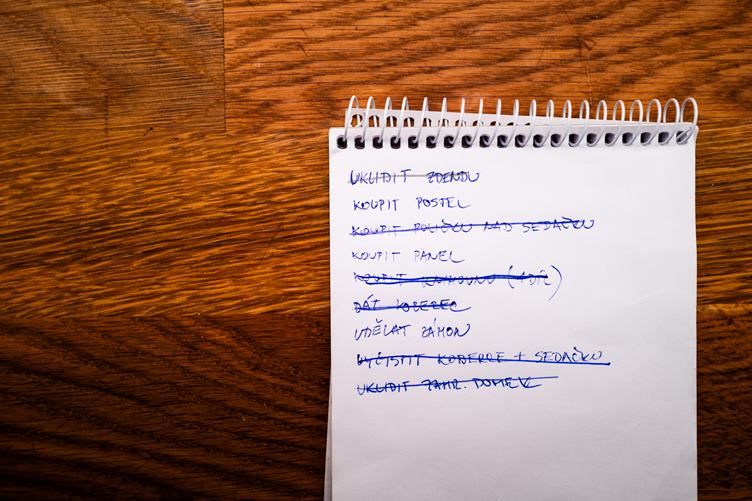 UKLIDIT ZDENDU
KOUPIT POSTEL
KOUPIT POLIČKU NAD SEDAČKU
KOUPIT PANEL
KOUPIT KNIHOVNU (1 DÍL)
DÁT KOBEREC
UDĚLAT ZÁHON
VYČISTIT KOBERCE + SEDAČKU
UKLIDIT ZAHR. DOMEK